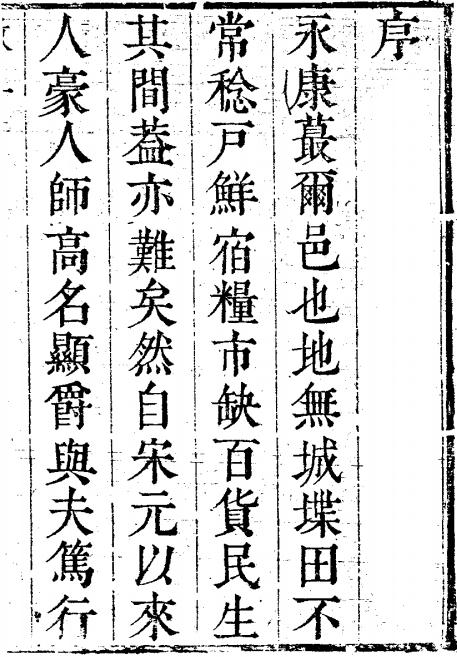 序
永康蕞爾邑也地無城堞田不
常稔戸鮮宿糧市缺百貨民生
其間葢亦難矣然自宋元以來
人豪人師高名顯爵與夫篤行